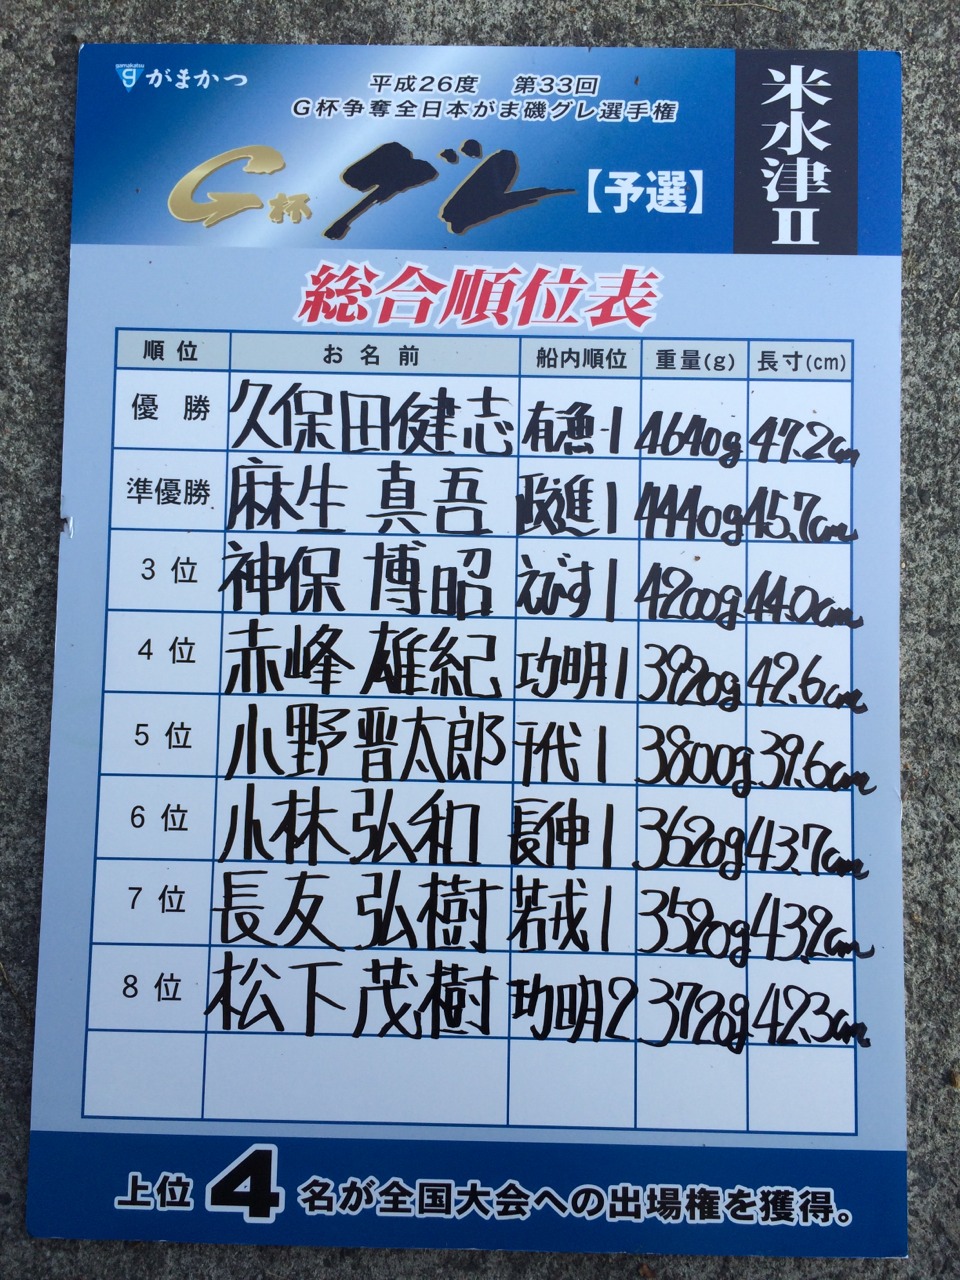 gamakatsu
がまかつ
平成26度 第33回
G杯争奪全日本がま磯グレ選手権
G杯グレ【予選】
米水津Ⅱ
総合順位表
順位 お名前 船内順位 重量(g) 長寸(cm)
優勝 久保田健志 有漁-1 4640g 47.2cm
準優勝 麻生 真吾 政進1 4440g 45.7cm
3位 神保 博昭 えびす1 4200g 44.0cm
4位 赤峰 雄紀 功明1 3920g 42.6cm
5位 小野晋太郎 千代1 3800g 39.6cm
6位 小林弘和 長伸1 3620g 43.7cm
7位 長友弘樹 若戎1 3520g 43.2cm
8位 松下茂樹 功明2 3720g 42.3cm
上位4名が全国大会への出場権を獲得。